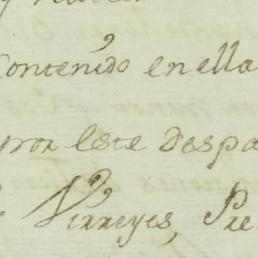 Contenido en ella
por Este Despa
Virreyes, Pre